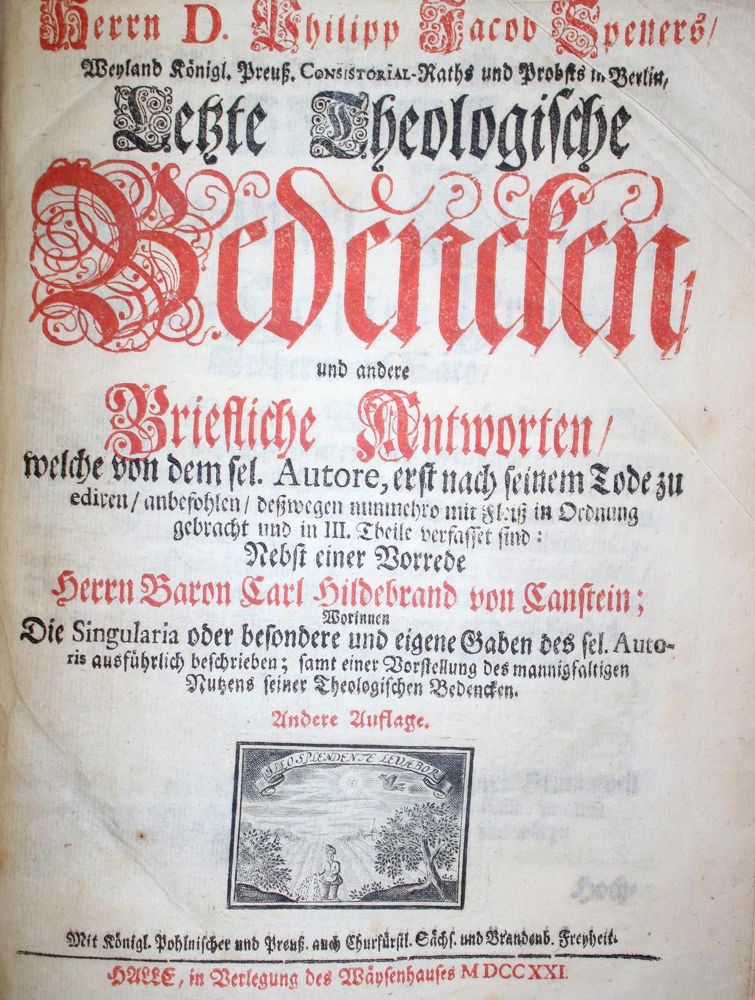 Herrn D. Philipp Jacob Speners/
Weyland Königl. Preuß. CONSISTORIAL-Raths und Probsts in Berlin,
Letzte Theologische
Bedencken/
und andere
Briefliche Antworten/
welche von dem sel. Autore, erst nach seinem Tode zu
ediren/ anbefohlen/ deßwegen nunmehro mit Fleiß in Ordnung
gebracht und in III. Theile verfasset sind:
Nebst einer Vorrede
Herrn Baron Carl Hildebrand von Canstein;
Worinnen
Die Singularia oder besondere und eigene Gaben des sel. Auto-
ris ausführlich beschrieben; samt einer Vorstellung des mannigfaltigen
Nutzens seiner Theologischen Bedencken.
Andere Auflage.
ILLO SPLENDENTE LEVABOR
Mit Königl. Pohlnischer und Preuß. auch Churfürstl. Sächs. und Brandenb. Freyheit.
HALLE, in Verlegung des Wäysenhauses MDCCXXI.